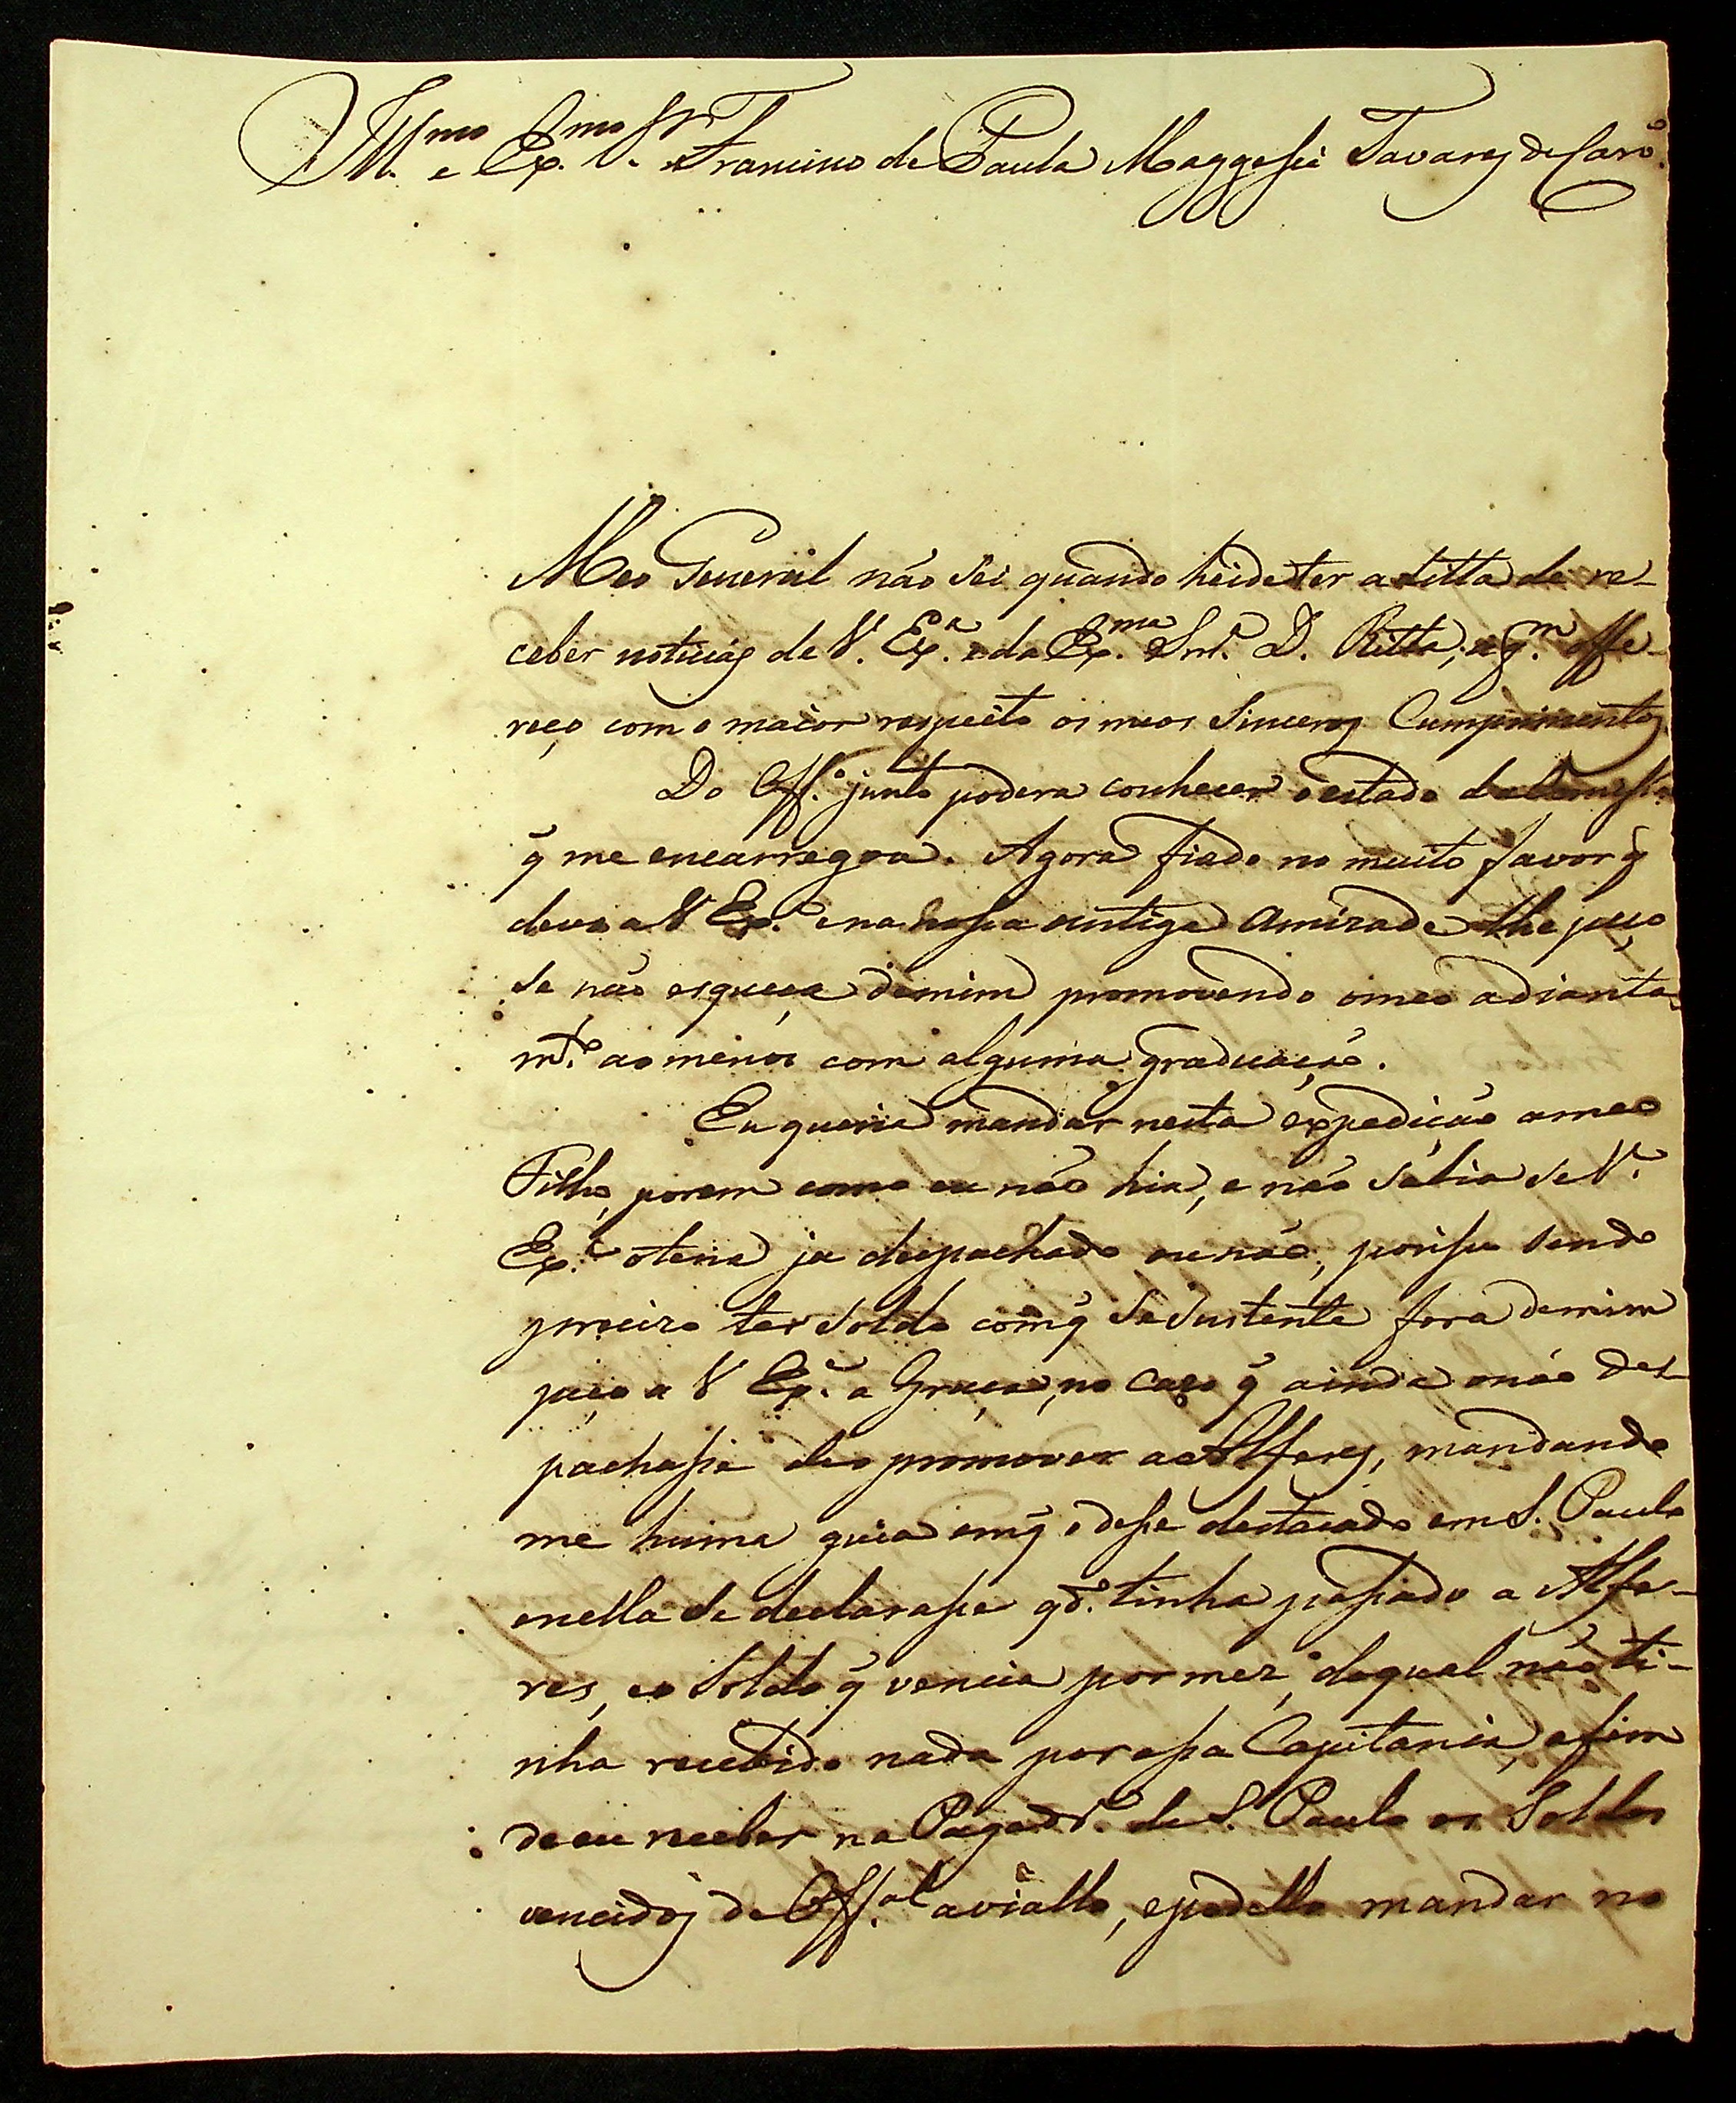 Ill.mo e Ex.mo Sr. Francisco de Paula Maggessi Tavares de Carv.o
Meo General não sei quando heideter a ditta de re-
ceber noticias de V. Ex.a e da Ex.ma Snr.a D. Ritta, a q.m offe-
reço com o maior respeito os meos sinceros Cumprimentos
Do Off.o junto podera conhecer o estado
q̃ me encarregou. Agora fiado no muito favor q̃
devo a V Ex.a e na nossa antiga amizade lhe peço
se não esqueça demim promovendo omeo adianta-
m.to ao menos com alguma graduação.
Eu queria mandar nesta expedição ameo
Filho, porem como eu não hia, e não sabia se V.
Ex.a oteria ja despachado ounão, porisso sendo
preciso ter soldo comq̃ seSustente fora demim
peço a V Ex.a a Graça, no cazo q̃ ainda onão des-
pachasse deo promover aAlferes, mandando
me huma guia emq̃ odesse destacado em S. Paulo
enella se declarasse q.do tinha passado a Alfe-
res, eo Soldo q̃ vencia por mez, doqual não ti-
nha recebido nada por essa Capitania, afim
deeu receber na Pagad.a de S. Paulo os Soldos
vencidos de Off.al aviallo, epodello mandar no